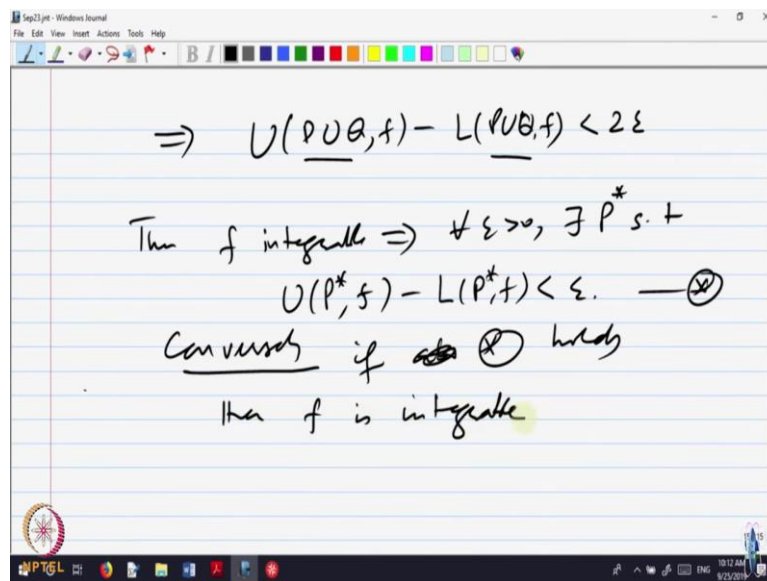 Sep23.jnt - Windows Journal
File Edit View Insert Actions Tools Help
B I
⇒ U(P∪Q,f) - L(P∪Q,f) < 2ε
Then f integrable ⇒ ∀ ε>0, ∃ P* s.t
U(P*,f) - L(P*,f) < ε. —⊛
Conversely if ⊛ holds
then f is integrable
NPTEL
ENG
10:12 AM
9/25/2019